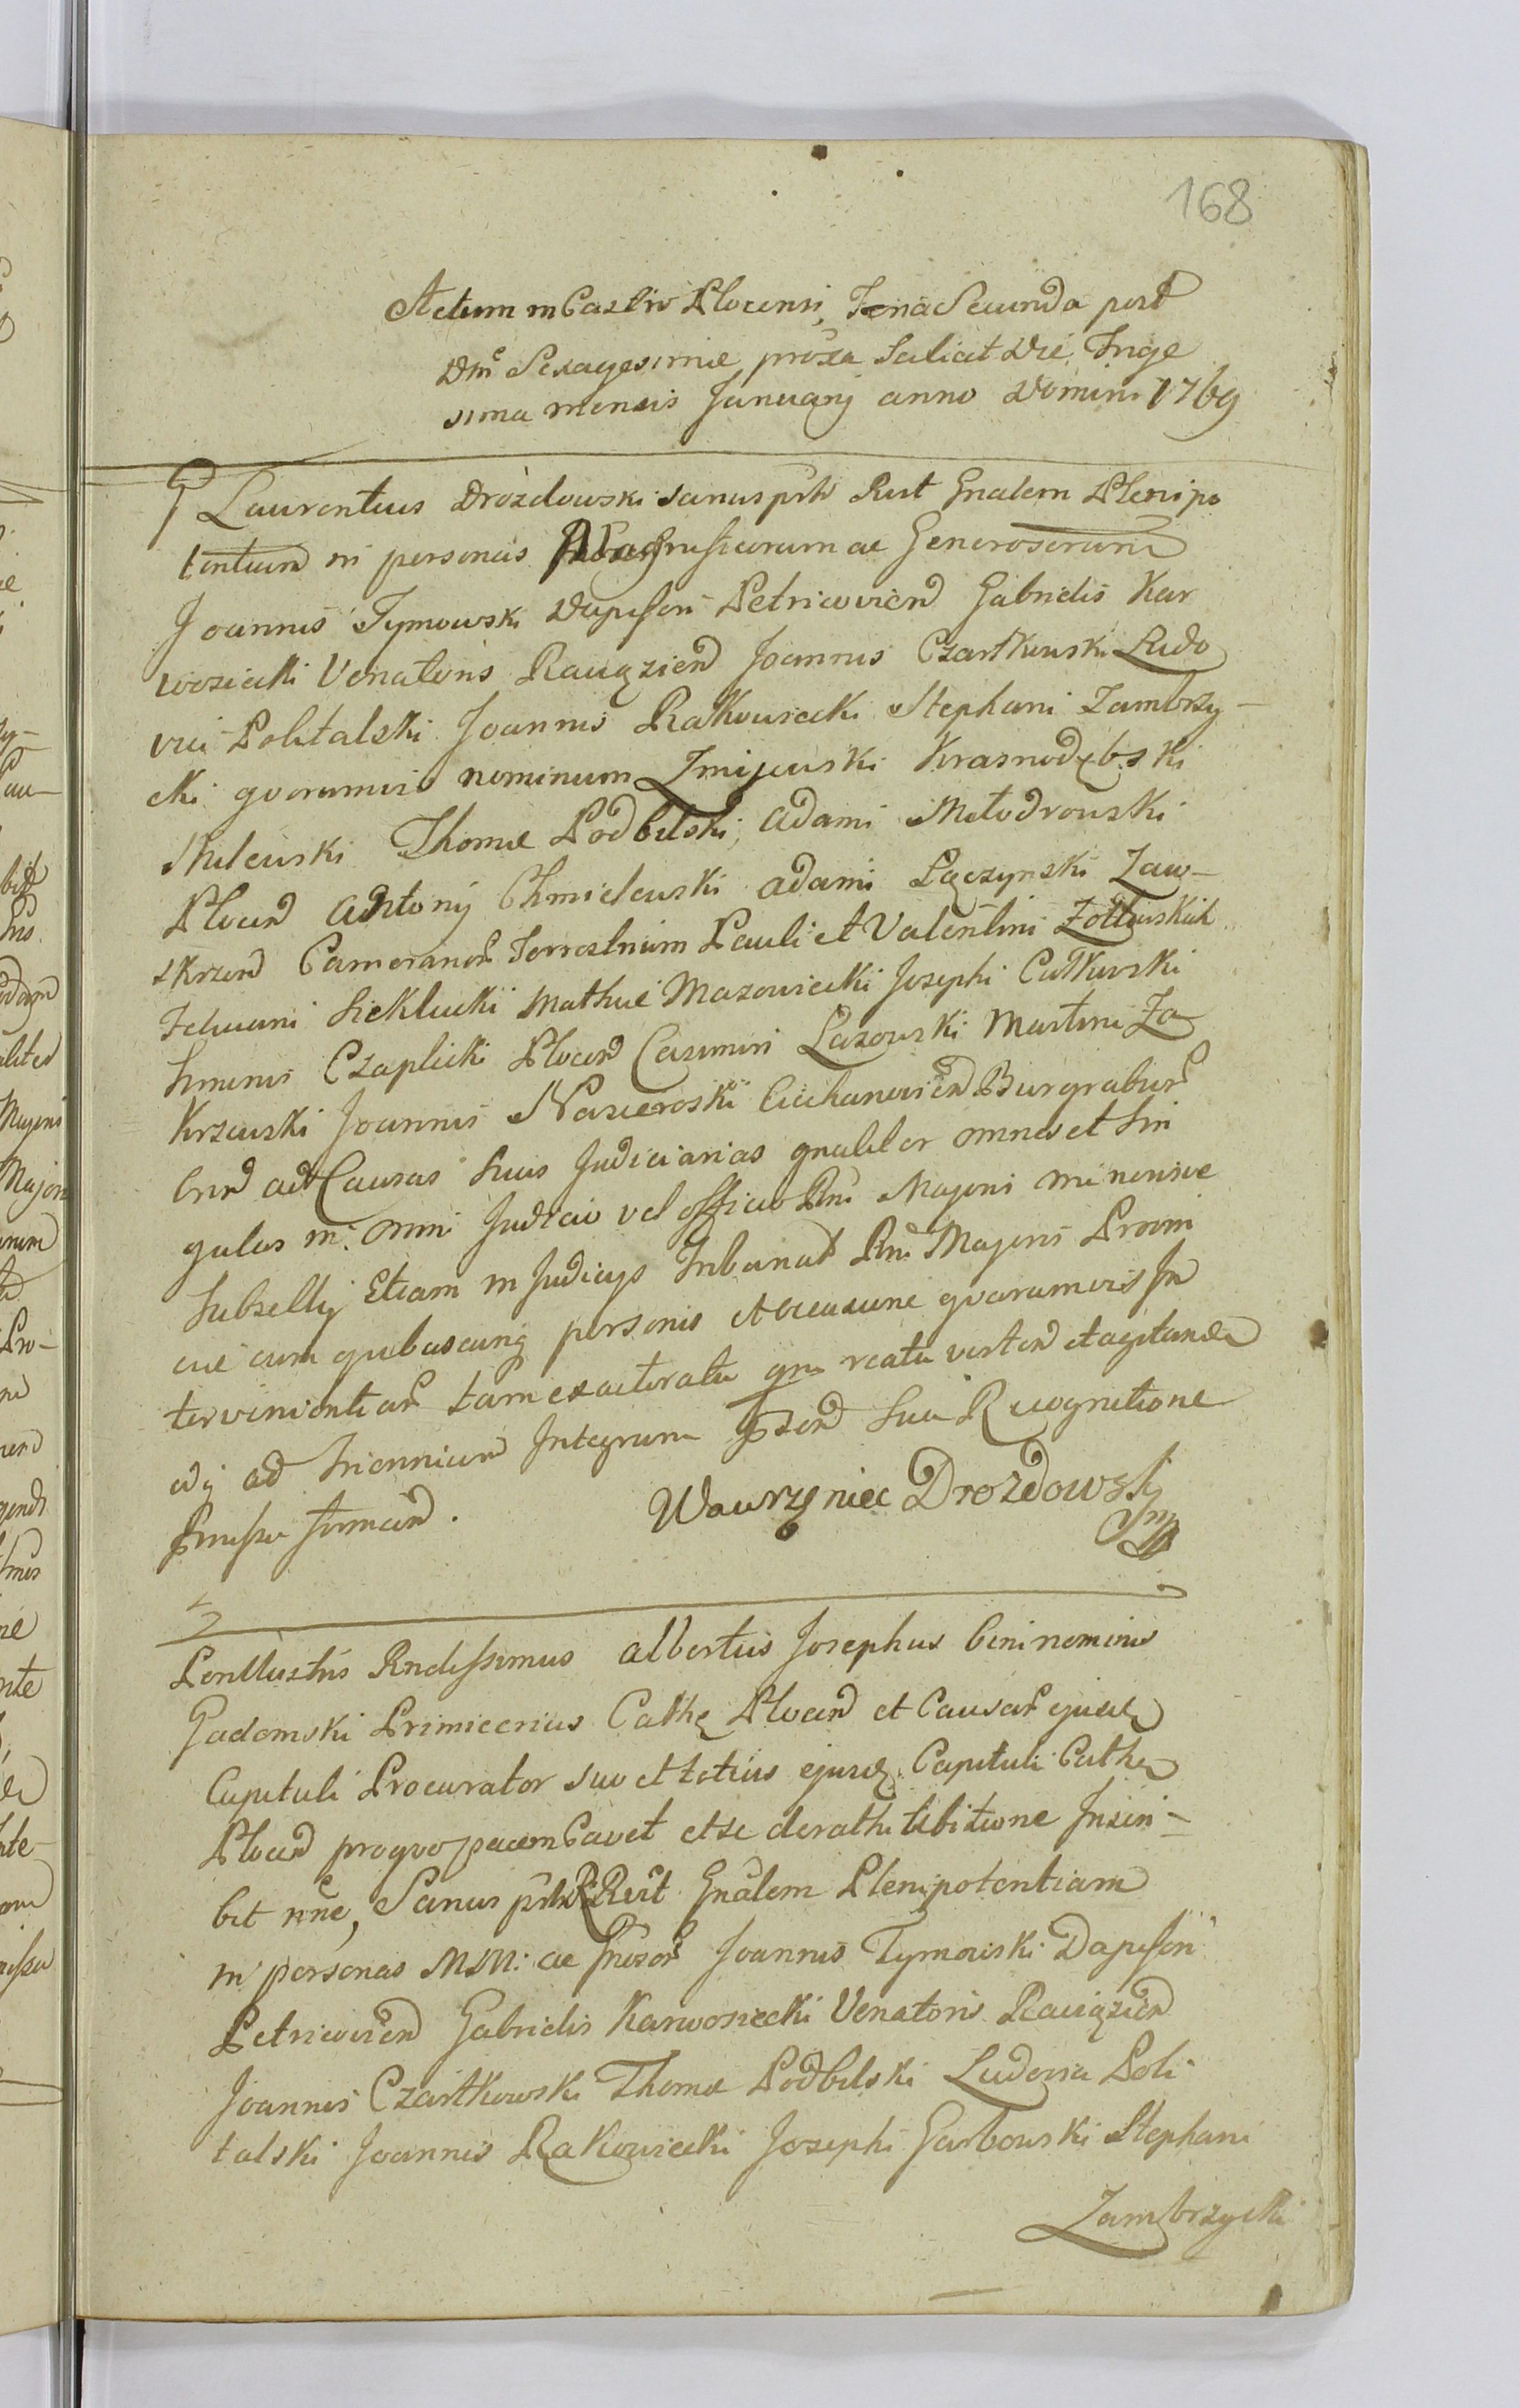 168
Actum in Castro Plocensi, Feria Secunda post
Dnī Sexagesimæ proxa Saliat Die Trige
sima mensis Januarij anno Domini 1769
G Laurentius Drozdowski sanus prło Rect Gnalem Plenipo
tentiam in personas Magnificorum ac Generosorum
Joannis Tymowski Dapiferi Petricovien Gabrielis Kar
wosiecki Venatoris Raciązien Joannis Czartkowski Ludo
vici Politalski Joannis Rakowiecki Stephani Zambrzy-
cki quorumvis nominum Zmijewski Krasnodębski
Milewski Thomæ Podbilski, Adami Młodzowski
Plocen Antonij Chmielewski Adami Łączynski Zaw-
skrzen Cameranor Terrestrium Pauli et Valentini Zołtowskich
Felicani Sieklucki Mathæi Mazowiecki Josephi Cutkowski
Simonis Czaplicki Plocen Casimiri Lasowski Martini Za
Krzewski Joannis Nasieroski Ciechanovien Burgrabior
Cren ad Causas Suas Judiciarias gnaliter omnes et Sin
gulas in omni Judicio vel officio Rni Majoris minorisve
Subsellij Etiam in Judicijs Tribunal Rni Majoris Provin
ciæ cum quibuscunq personis et occasione quarumvis In
terveniontiar tam ex actoratu qm reatu verten et agitanda
adj ad Triennium Integrum Psen Sua Recognitione
Pmissa firman.
Wawrzyniec Drozdowski
mp
Perillustris Rndissimus Albertus Josephus bini nominis
Gadomski Primicerius Cathe Plocen et Causar ejusd
Capituli Procurator suo et totius ejusd Capituli Cathe
Plocen pro quo pacem Cavet et se de rathi tibitione Inscri-
bit nne, Sanus prło Rect Gnalem Plenipotentiam
in personas MM: ac Gnosor Joannis Tymowski Dapiferi
Petricovien Gabrielis Karwosiecki Venatoris Raciązien
Joannis Czartkowski Thomæ Podbilski Ludovici Poli
talski Joannis Rakowiecki Josephi Garbowski Stephani
Zambrzycki